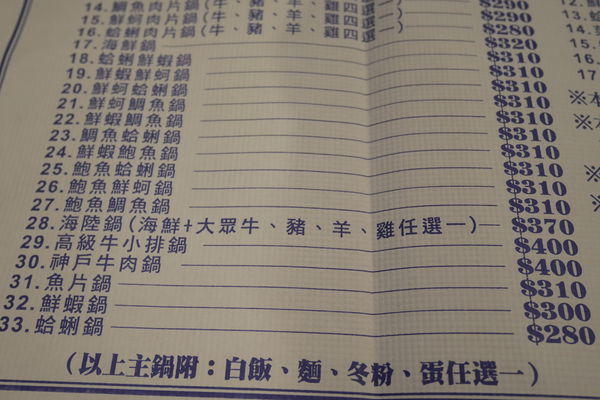 14.鯛魚肉片鍋(牛、豬、羊、雞四選一) $290
15.鮮蚵肉片鍋(牛、豬、羊、雞四選一) $290
16.蛤蜊肉片鍋(牛、豬、羊、雞四選一) $280
17.海鮮鍋 $320
18.蛤蜊鮮蝦鍋 $310
19.鮮蝦鮮蚵鍋 $310
20.鮮蚵蛤蜊鍋 $310
21.鮮蚵鯛魚鍋 $310
22.鮮蝦鯛魚鍋 $310
23.鯛魚蛤蜊鍋 $310
24.鮮蝦鮑魚鍋 $310
25.鮑魚蛤蜊鍋 $310
26.鮑魚鮮蚵鍋 $310
27.鮑魚鯛魚鍋 $310
28.海陸鍋(海鮮+大眾牛、豬、羊、雞任選一) $370
29.高級牛小排鍋 $400
30.神戶牛肉鍋 $400
31.魚片鍋 $310
32.鮮蝦鍋 $300
33.蛤蜊鍋 $280
(以上主鍋附：白飯、麵、冬粉、蛋任選一)
12.
13.
14.
15.
16.
17
※本
※
※